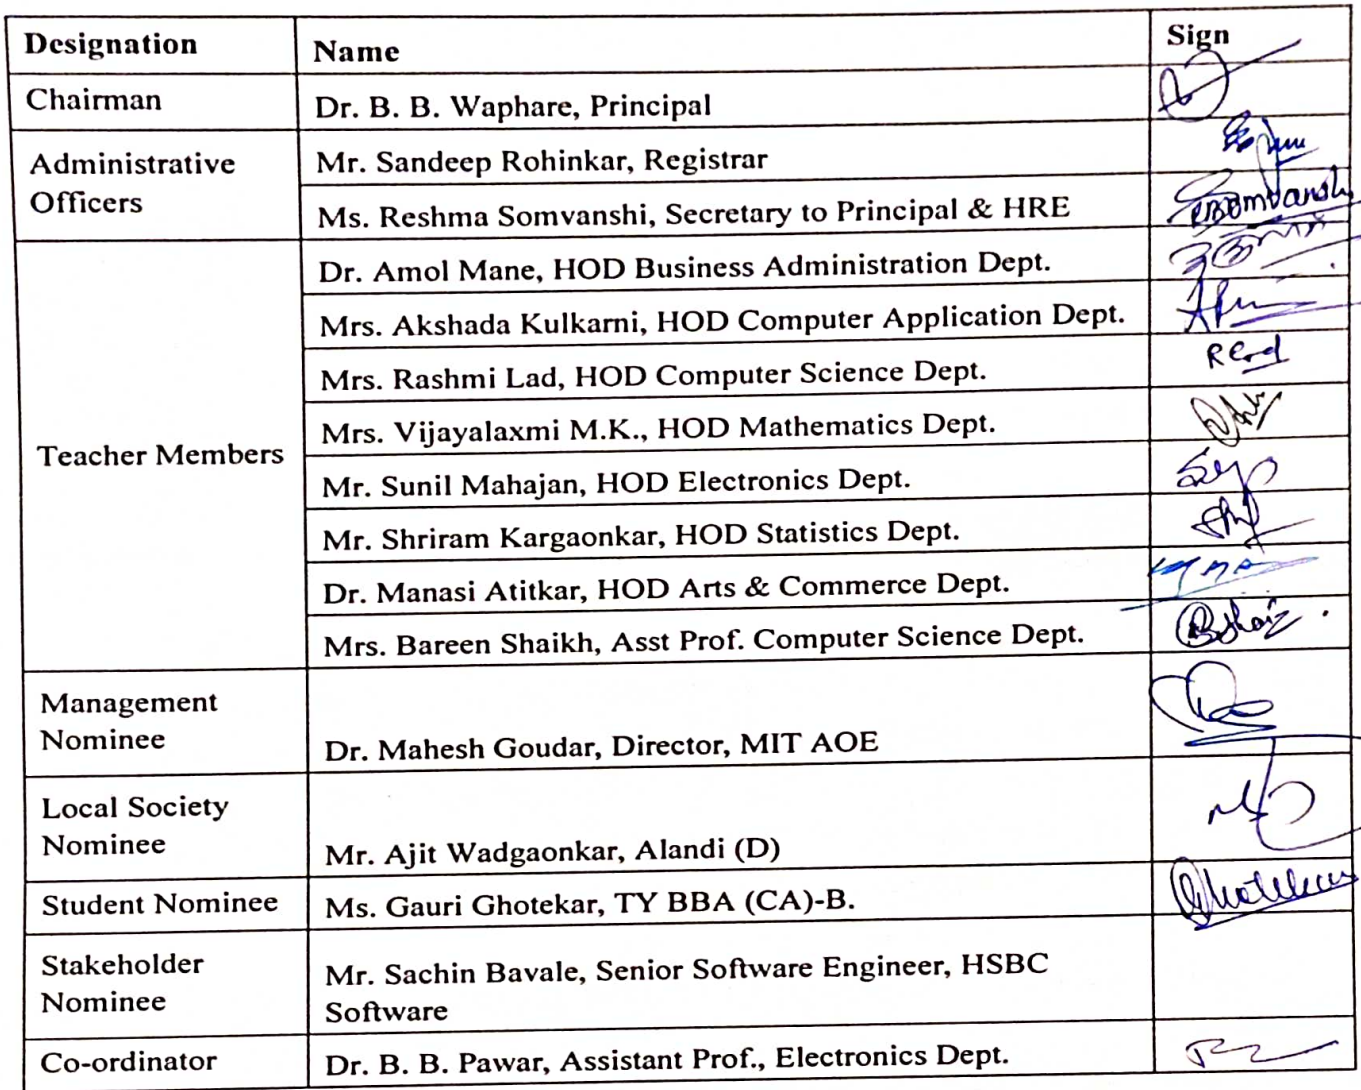 Designation Name Sign
Chairman Dr. B. B. Waphare, Principal
Administrative Officers
Mr. Sandeep Rohinkar, Registrar
Ms. Reshma Somvanshi, Secretary to Principal & HRE
Teacher Members
Dr. Amol Mane, HOD Business Administration Dept.
Mrs. Akshada Kulkarni, HOD Computer Application Dept.
Mrs. Rashmi Lad, HOD Computer Science Dept.
Mrs. Vijayalaxmi M.K., HOD Mathematics Dept.
Mr. Sunil Mahajan, HOD Electronics Dept.
Mr. Shriram Kargaonkar, HOD Statistics Dept.
Dr. Manasi Atitkar, HOD Arts & Commerce Dept.
Mrs. Bareen Shaikh, Asst Prof. Computer Science Dept.
Management
Nominee
Dr. Mahesh Goudar, Director, MIT AOE
Local Society
Nominee
Mr. Ajit Wadgaonkar, Alandi (D)
Student Nominee Ms. Gauri Ghotekar, TY BBA (CA)-B.
Stakeholder
Nominee
Mr. Sachin Bavale, Senior Software Engineer, HSBC
Software
Co-ordinator Dr. B. B. Pawar, Assistant Prof., Electronics Dept.